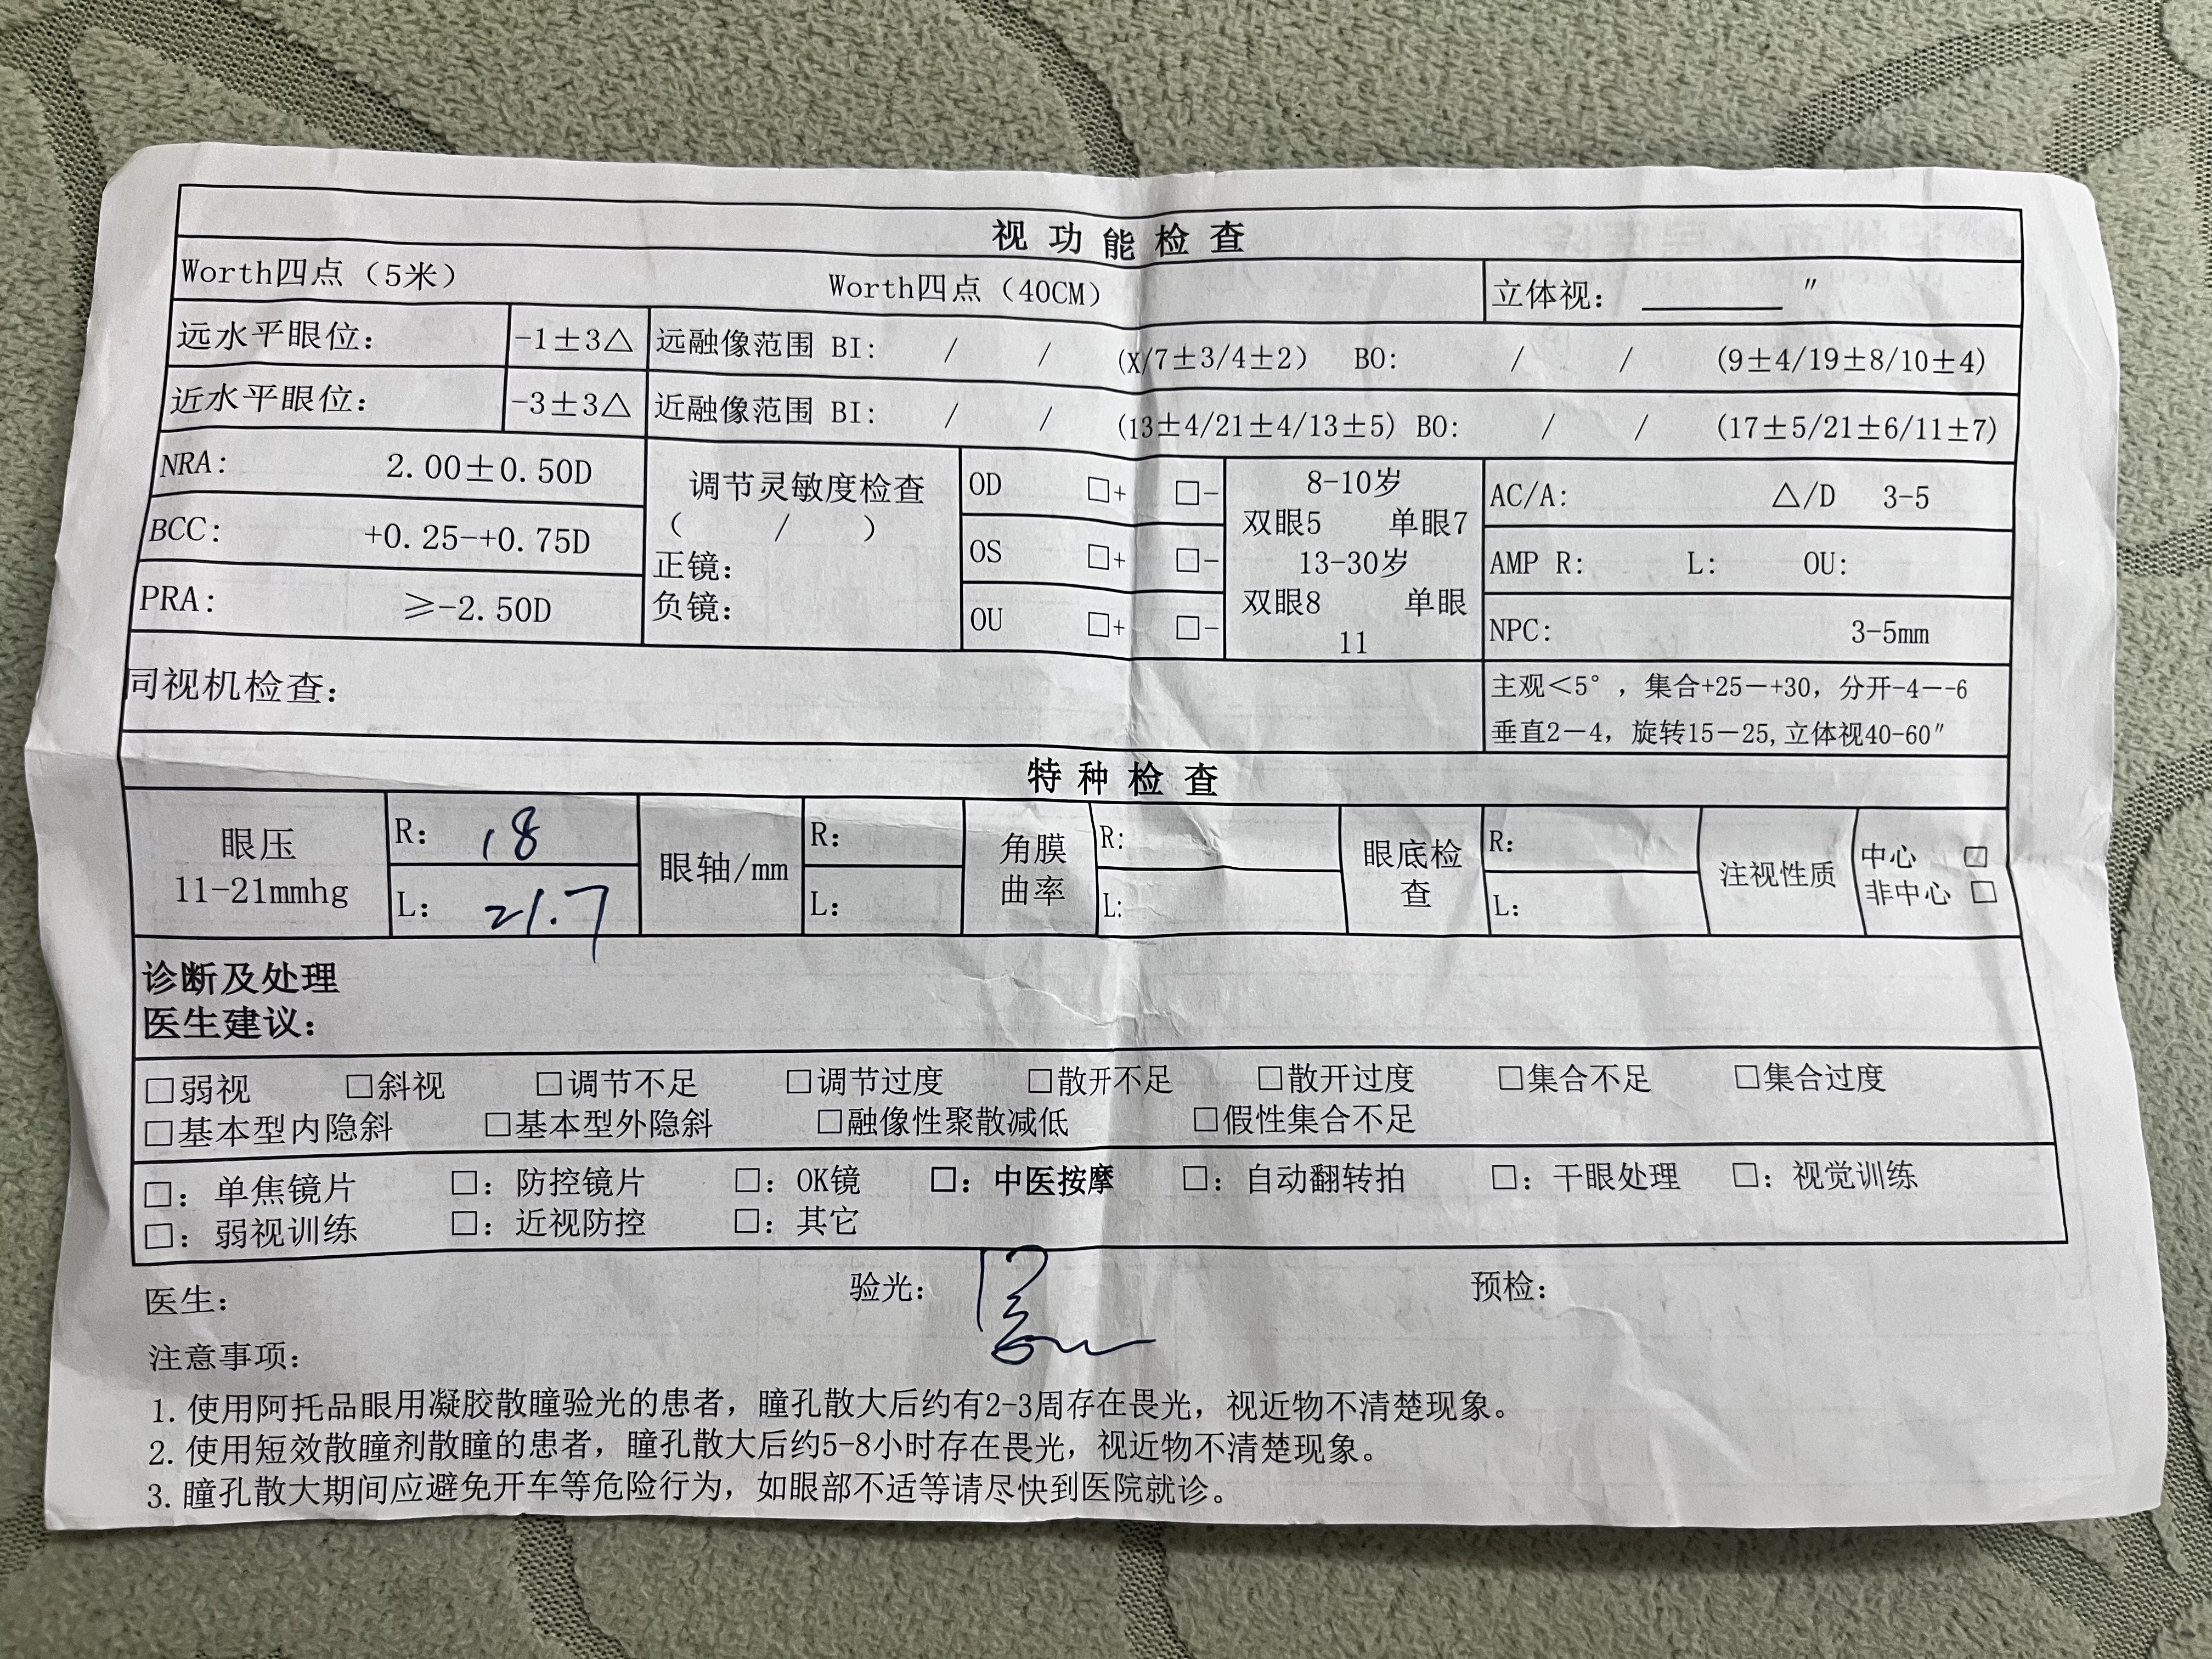 视功能检查
Worth四点（5米） Worth四点（40CM） 立体视：______″
远水平眼位： -1±3△ 远融像范围 BI: / / (X/7±3/4±2) BO: / / (9±4/19±8/10±4)
近水平眼位： -3±3△ 近融像范围 BI: / / (13±4/21±4/13±5) BO: / / (17±5/21±6/11±7)
NRA: 2.00±0.50D
BCC: +0.25-+0.75D
PRA: ≥-2.50D
调节灵敏度检查
（ / ）
正镜：
负镜：
OD □+ □-
OS □+ □-
OU □+ □-
8-10岁
双眼5 单眼7
13-30岁
双眼8 单眼
11
AC/A: △/D 3-5
AMP R: L: OU:
NPC: 3-5mm
同视机检查：
主观＜5°，集合+25—+30，分开-4—-6
垂直2—4，旋转15—25,立体视40-60″
特种检查
眼压
11-21mmhg
R: 18
L: 21.7
眼轴/mm
R:
L:
角膜
曲率
R:
L:
眼底检
查
R:
L:
注视性质
中心 □
非中心 □
诊断及处理
医生建议：
□弱视 □斜视 □调节不足 □调节过度 □散开不足 □散开过度 □集合不足 □集合过度
□基本型内隐斜 □基本型外隐斜 □融像性聚散减低 □假性集合不足
□：单焦镜片 □：防控镜片 □：OK镜 □：中医按摩 □：自动翻转拍 □：干眼处理 □：视觉训练
□：弱视训练 □：近视防控 □：其它
医生： 验光： 预检：
注意事项：
1. 使用阿托品眼用凝胶散瞳验光的患者，瞳孔散大后约有2-3周存在畏光，视近物不清楚现象。
2. 使用短效散瞳剂散瞳的患者，瞳孔散大后约5-8小时存在畏光，视近物不清楚现象。
3. 瞳孔散大期间应避免开车等危险行为，如眼部不适等请尽快到医院就诊。